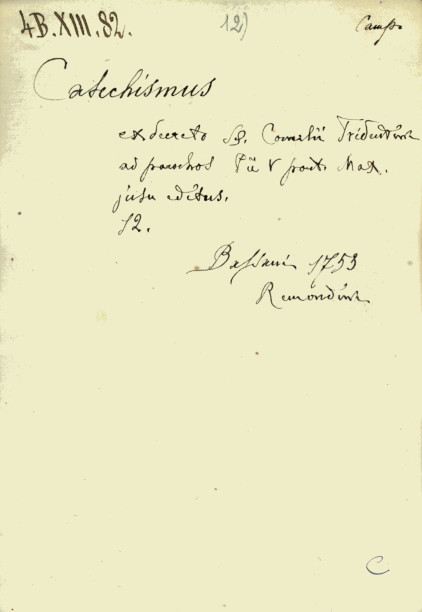 4B.XIII.82.
12)
Camp.
Catechismus
ex decreto SS. Concilii Tridentini
ad parochos Pii V pont. Max.
jusu editus.
12.
Bassani 1753
Remondini
C